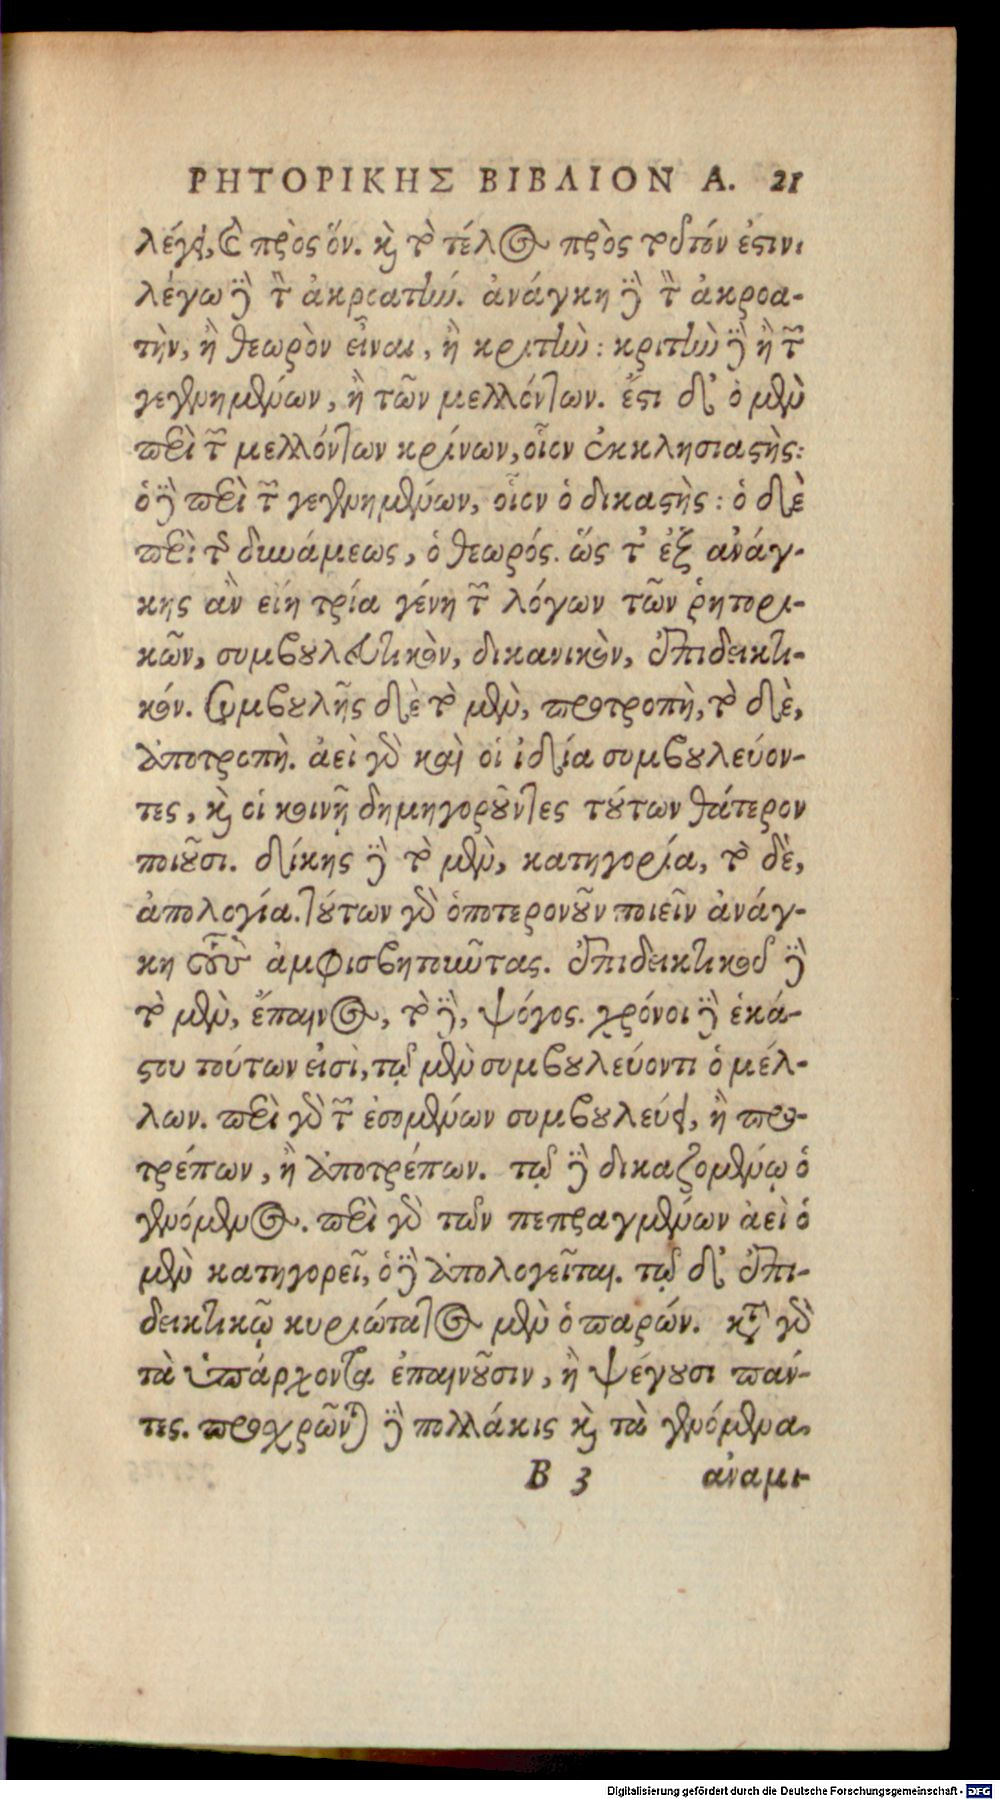 ΡΗΤΟΡΙΚΗΣ ΒΙΒΛΙΟΝ Α. 21
λέγει, καὶ πρὸς ὅν. καὶ τὸ τέλος πρὸς τοῦτόν ἐστιν.
λέγω δὲ τὸν ἀκροατήν. ἀνάγκη δὲ τὸν ἀκροα-
τὴν, ἢ θεωρὸν εἶναι, ἢ κριτήν: κριτὴν δὲ ἢ τῶν
γεγενημένων, ἢ τῶν μελλόντων. ἔστι δ' ὁ μὲν
περὶ τῶν μελλόντων κρίνων, οἷον ἐκκλησιαστής:
ὁ δὲ περὶ τῶν γεγενημένων, οἷον ὁ δικαστής: ὁ δὲ
περὶ τῆς δυνάμεως, ὁ θεωρός. ὥστ' ἐξ ἀνάγ-
κης ἂν εἴη τρία γένη τῶν λόγων τῶν ῥητορι-
κῶν, συμβουλευτικὸν, δικανικὸν, ἐπιδεικτι-
κόν. Συμβουλῆς δὲ τὸ μὲν, προτροπὴ, τὸ δὲ,
ἀποτροπὴ. ἀεὶ γὰρ καὶ οἱ ἰδία συμβουλεύον-
τες, καὶ οἱ κοινῇ δημηγοροῦντες τούτων θάτερον
ποιοῦσι. δίκης δὲ τὸ μὲν, κατηγορία, τὸ δὲ,
ἀπολογία. τούτων γὰρ ὁποτερονοῦν ποιεῖν ἀνάγ-
κη τοὺς ἀμφισβητοῦντας. ἐπιδεικτικοῦ δὲ
τὸ μὲν, ἔπαινος, τὸ δὲ, ψόγος. χρόνοι δὲ ἑκά-
στου τούτων εἰσὶ, τῷ μὲν συμβουλεύοντι ὁ μέλ-
λων. περὶ γὰρ τῶν ἐσομένων συμβουλεύει, ἢ προ-
τρέπων, ἢ ἀποτρέπων. τῷ δὲ δικαζομένῳ ὁ
γενόμενος. περὶ γὰρ τῶν πεπραγμένων ἀεὶ ὁ
μὲν κατηγορεῖ, ὁ δὲ ἀπολογεῖται. τῷ δ' ἐπι-
δεικτικῷ κυριώτατος μὲν ὁ παρών. κατὰ γὰρ
τὰ ὑπάρχοντα ἐπαινοῦσιν, ἢ ψέγουσι πάν-
τες. προσχρῶνται δὲ πολλάκις καὶ τὰ γενόμενα
B 3 ἀναμι-
Digitalisierung gefördert durch die Deutsche Forschungsgemeinschaft - DFG